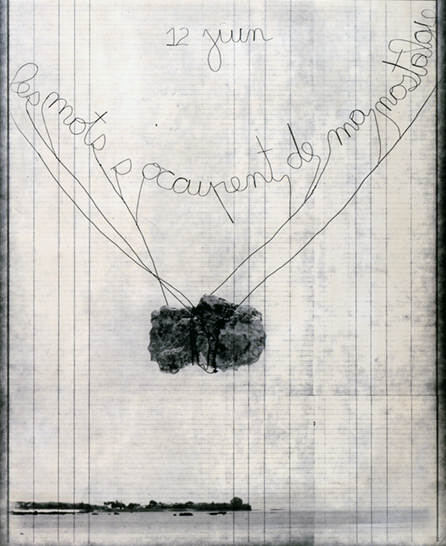 12 juin
les mots s'occupent de ma nostalgie